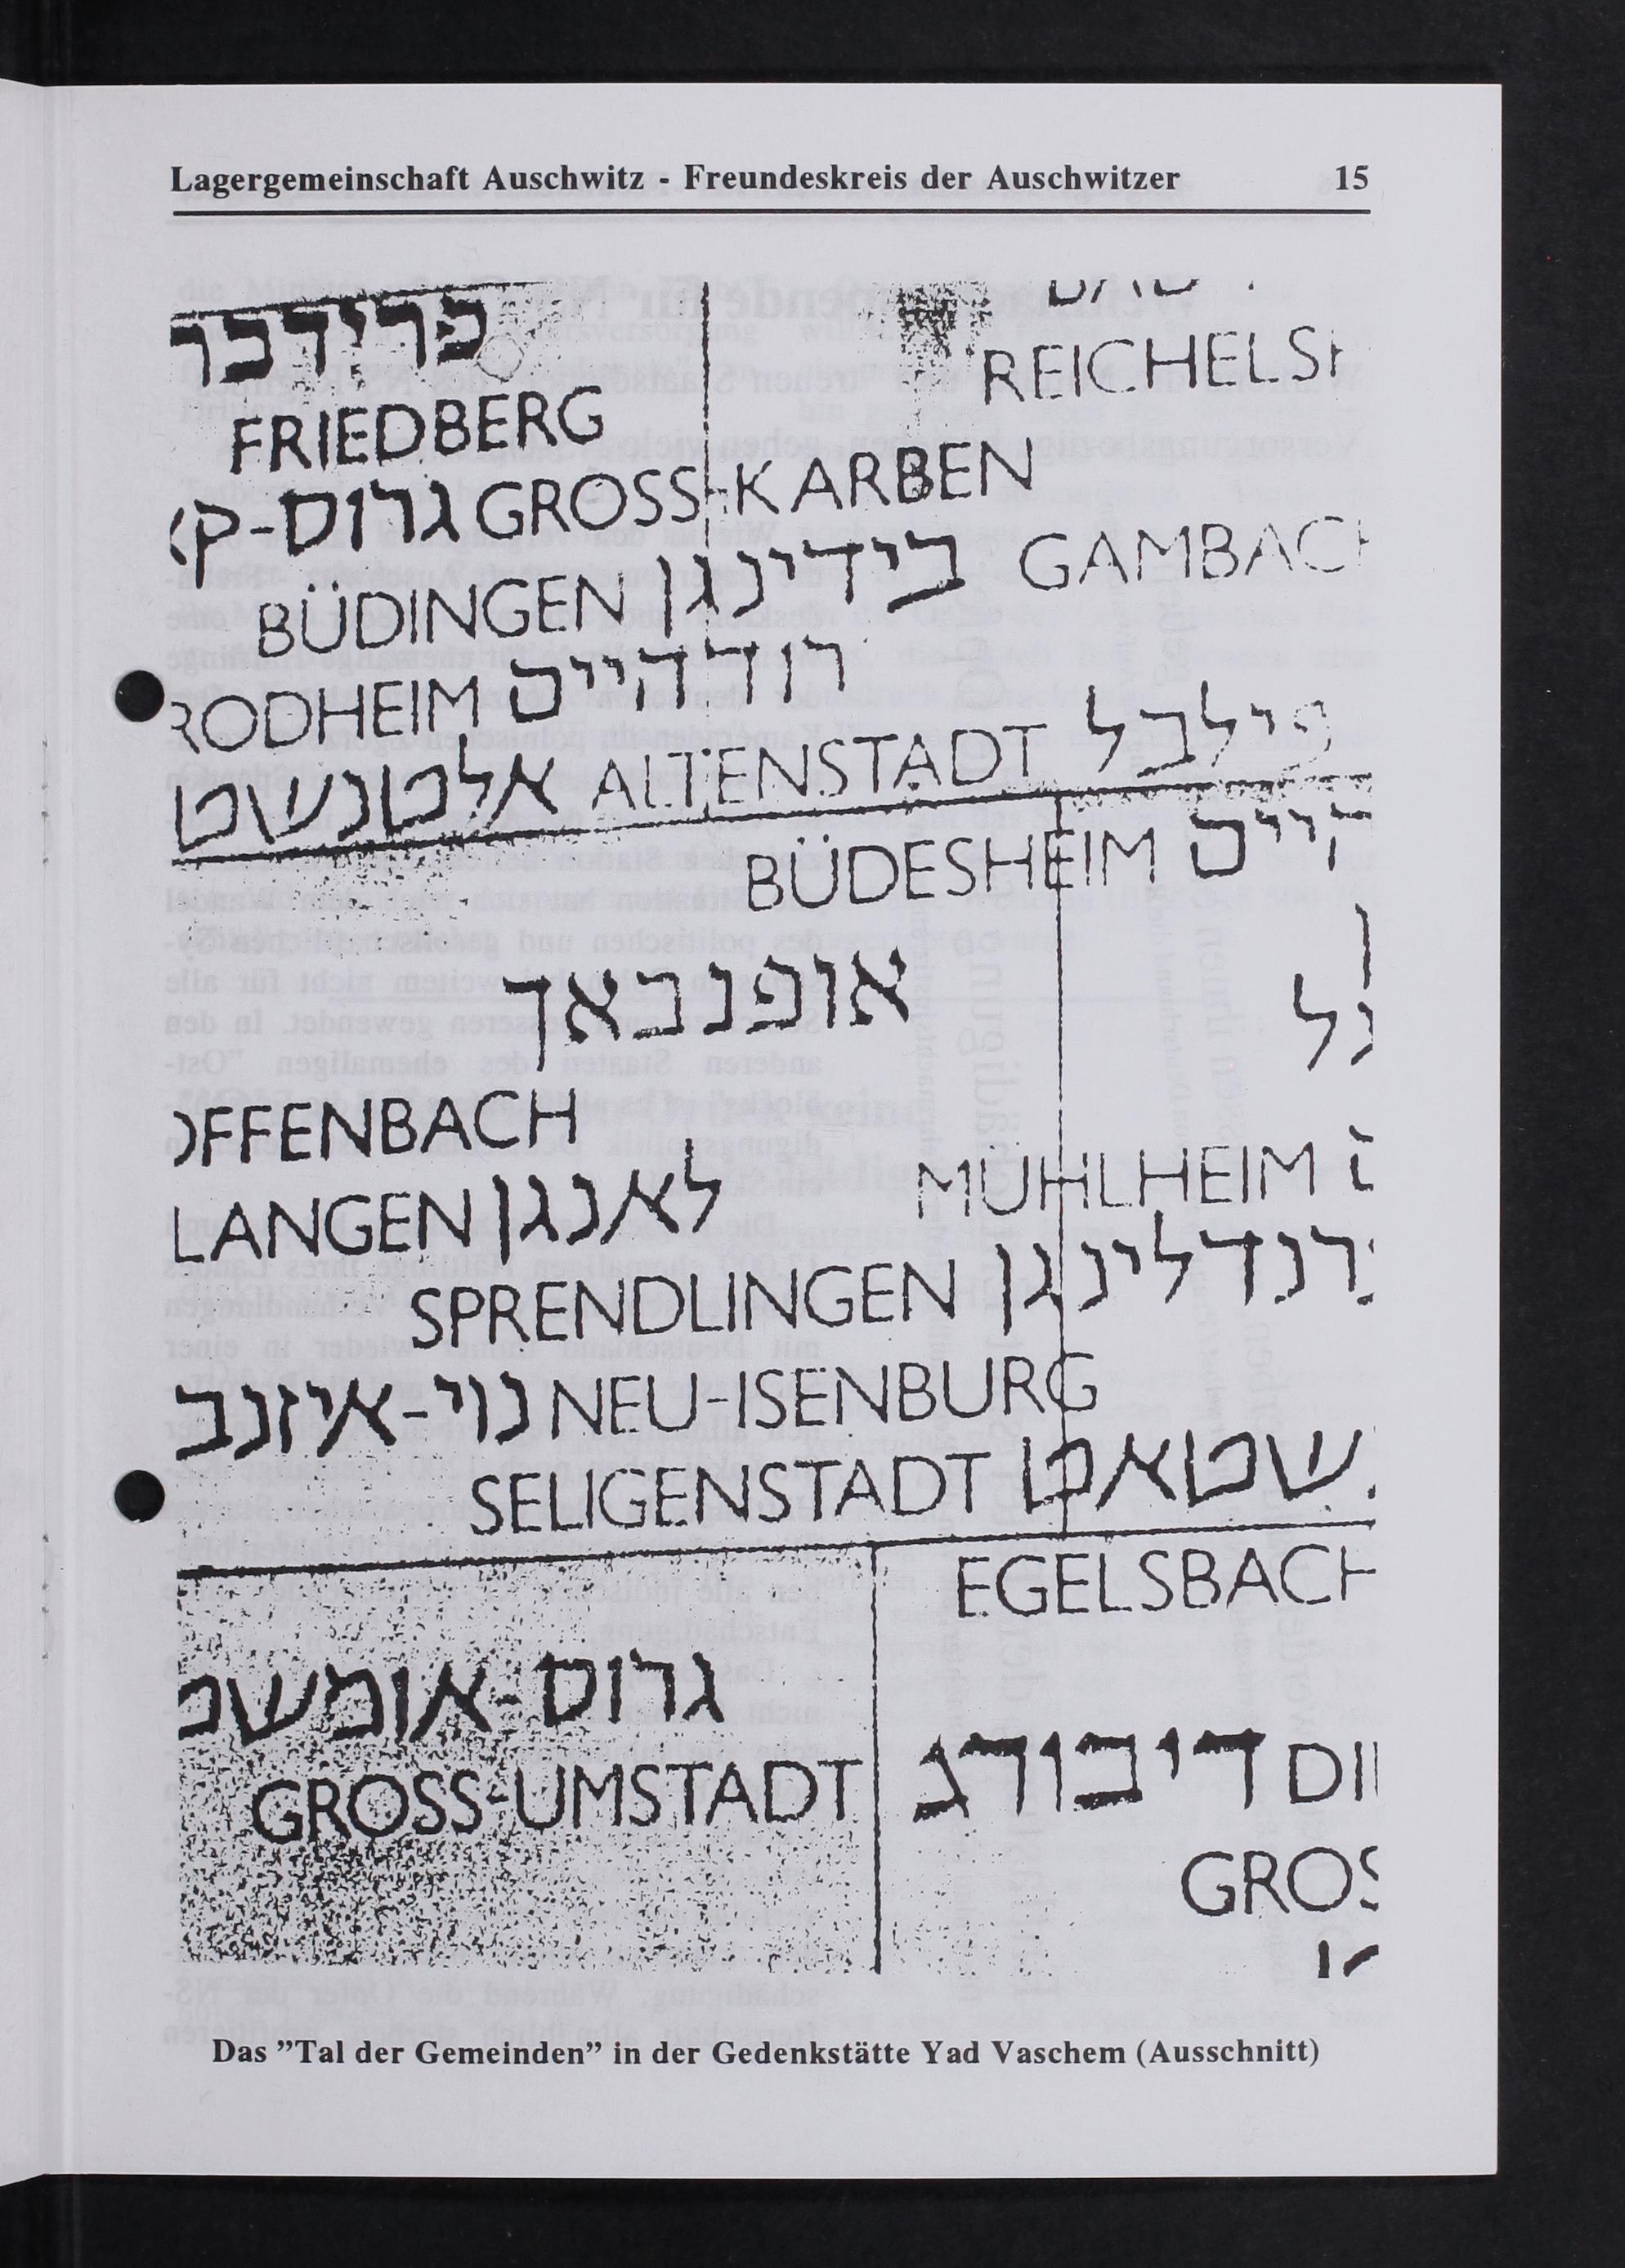 Lagergemeinschaft Auschwitz - Freundeskreis der Auschwitzer 15
פרידבר
FRIEDBERG
REICHELS
גרוס-ק GROSS-KARBEN
BÜDINGEN בידינגן GAMBACH
RODHEIM רודהיים
אלטנשט ALTENSTADT וילבל
BÜDESHEIM היים
אופנבאך
OFFENBACH
LANGEN לאנגן
MÜHLHEIM
SPRENDLINGEN רנדלינגן
נוי-איזנב NEU-ISENBURG
SELIGENSTADT שטאט
EGELSBACH
גרוס-אומשט
GROSS-UMSTADT
דיבורג DI
GROS
Das ”Tal der Gemeinden” in der Gedenkstätte Yad Vaschem (Ausschnitt)